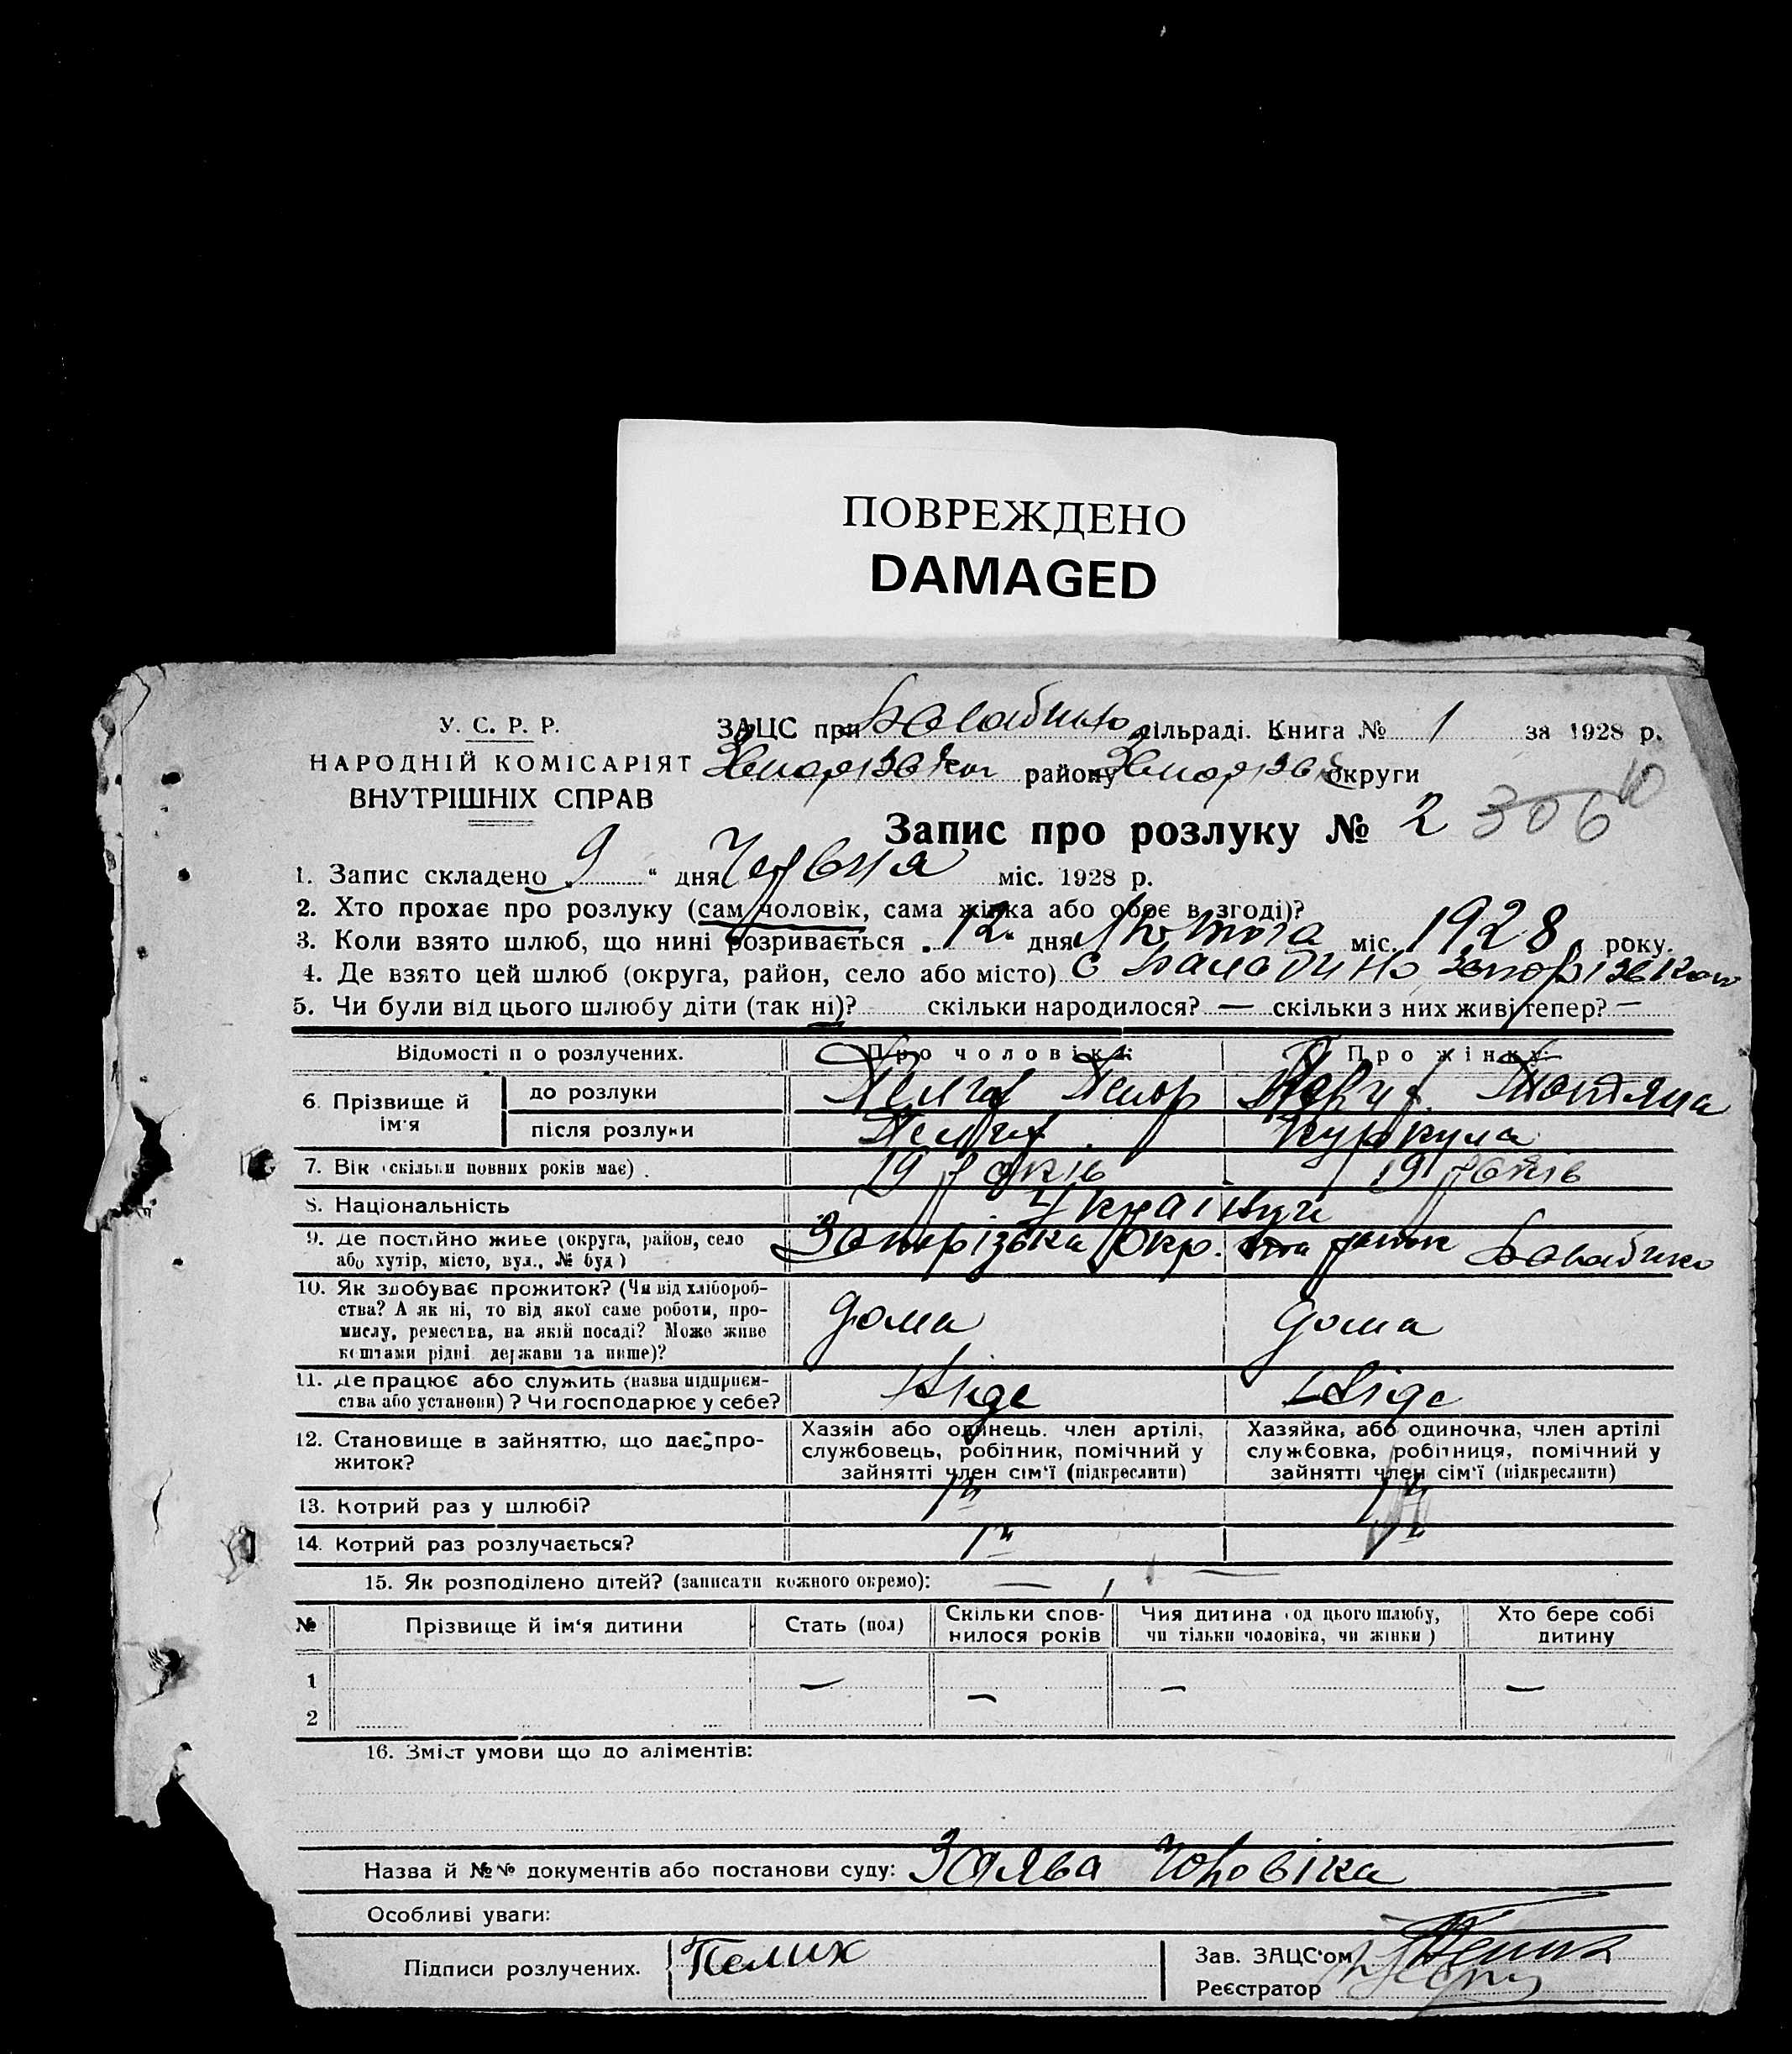 ПОВРЕЖДЕНО
DAMAGED
У. С. Р. Р.
НАРОДНІЙ КОМІСАРІЯТ
ВНУТРІШНІХ СПРАВ
ЗАЦС при сільраді. Книга № 1 за 1928 р.
району округи
Запис про розлуку № 2 306 10
1. Запис складено „ 9 “ дня Червня міс. 1928 р.
2. Хто прохає про розлуку (сам чоловік, сама жінка або обоє в згоді)?
3. Коли взято шлюб, що нині розривається „ 12 “ дня Лютога міс. 1928 року.
4. Де взято цей шлюб (округа, район, село або місто) с Балабино,
5. Чи були від цього шлюбу діти (так ні)? скільки народилося? — скільки з них живі тепер? —
Відомості п о розлучених. Про чоловіка: Про жінку:
6. Прізвище й ім'я до розлуки Татяна
після розлуки Куркула
7. Вік (скільки повних років має). 19 років 19 років
8. Національність Українці
9. Де постійно живе (округа, район, село
або хутір, місто, вул., № буд) Запорізька Окр. Балабино
10. Як здобуває прожиток? (Чи від хлібороб-
ства? А як ні, то від якої саме роботи, про-
мислу, ремества, на якій посаді? Може живе
коштами рідні держави та инше)? дома дома
11. Де працює або служить (назва підприєм-
ства або установи)? Чи господарює у себе? Ніде Ніде
12. Становище в зайняттю, що дає про-
житок?
Хазяїн або одинець. член артілі,
службовець, робітник, помічний у
зайнятті член сім'ї (підкреслити)
Хазяйка, або одиночка, член артілі
службовка, робітниця, помічний у
зайнятті член сім'ї (підкреслити)
13. Котрий раз у шлюбі? 1й 1й
14. Котрий раз розлучається? 1й 1й
15. Як розподілено дітей? (записати кожного окремо): —
№ Прізвище й ім'я дитини Стать (пол) Скільки спов-
нилося років Чия дитина (од цього шлюбу,
чи тільки чоловіка, чи жінки) Хто бере собі
дитину
1 — — — —
2
16. Зміст умови що до аліментів:
Назва й №№ документів або постанови суду: Заява Чоловіка
Особливі уваги:
Підписи розлучених. Пелих
Зав. ЗАЦС'ом
Реєстратор